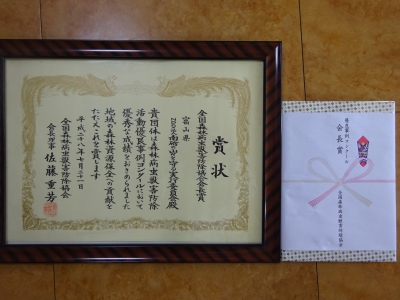 賞状
全国森林病虫獣害防除協会会長賞
富山県
貴団体は森林病虫獣害防除
活動優良事例コンクールにおいて
優秀な成績をおさめられました
地域の森林資源保全への貢献を
たたえこれを賞します
平成二十八年七月二十一日
全国森林病虫獣害防除協会
会長理事 佐藤重芳
優良事例コンクール
会長賞
全国森林病虫獣害防除協会